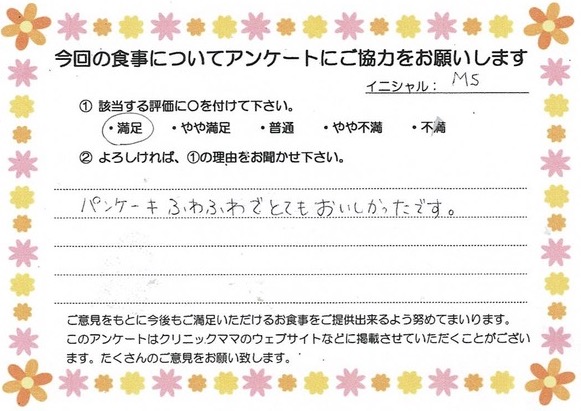 今回の食事についてアンケートにご協力をお願いします
イニシャル： MS
① 該当する評価に〇を付けて下さい。
・満足 ・やや満足 ・普通 ・やや不満 ・不満
② よろしければ、①の理由をお聞かせ下さい。
パンケーキふわふわでとてもおいしかったです。
ご意見をもとに今後もご満足いただけるお食事をご提供出来るよう努めてまいります。
このアンケートはクリニックママのウェブサイトなどに掲載させていただくことがござい
ます。たくさんのご意見をお願い致します。